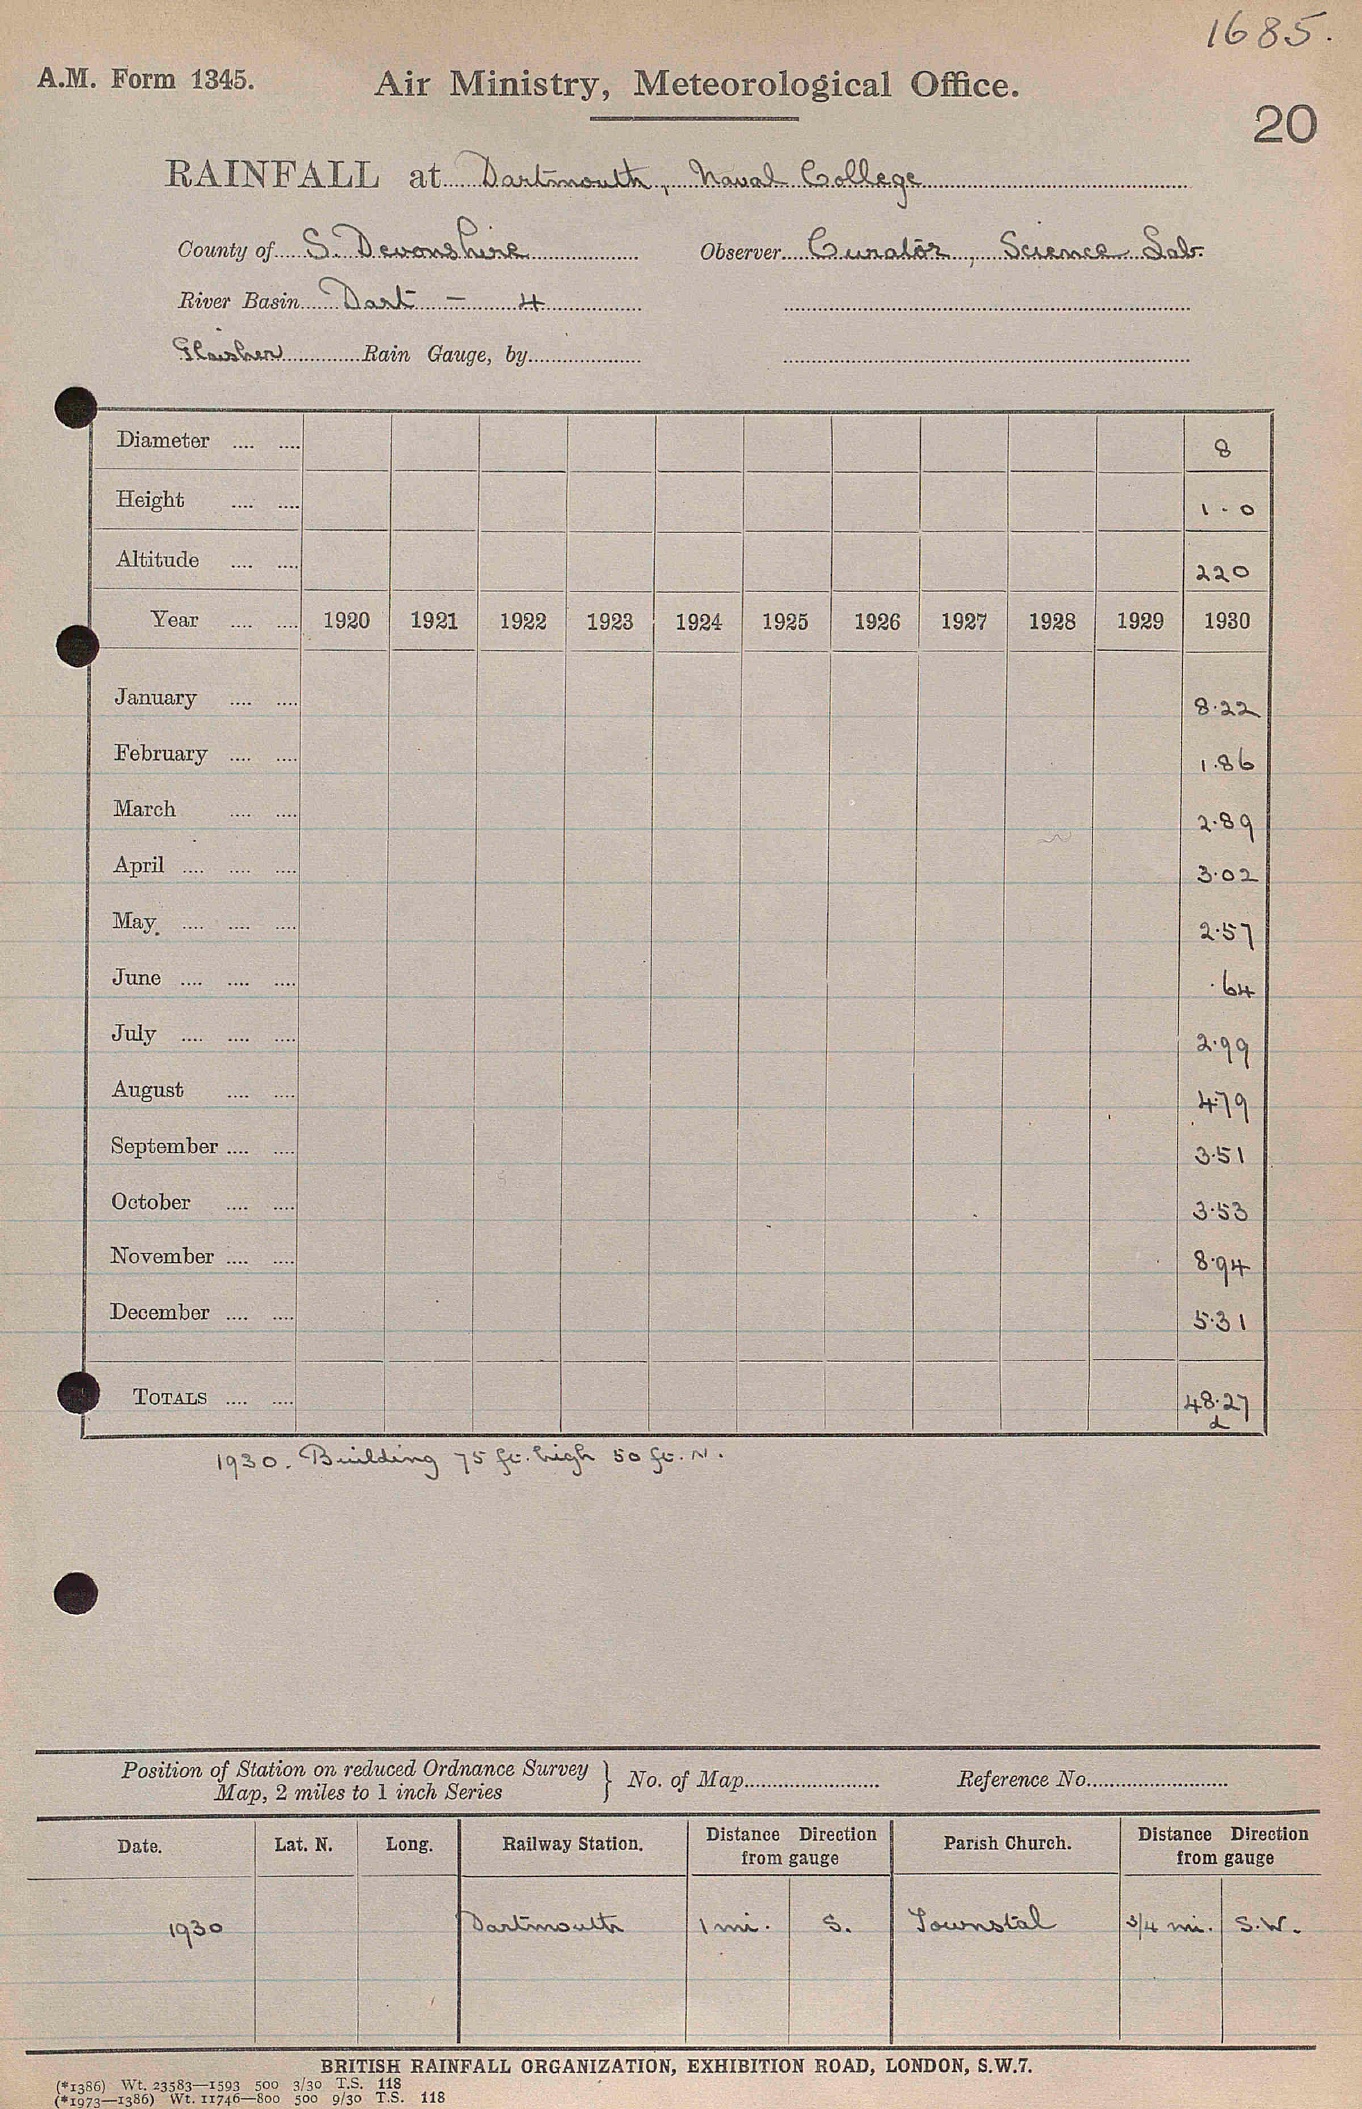 1685.
A.M. Form 1345. Air Ministry, Meteorological Office.
20
RAINFALL at Dartmouth, Naval College
County of S. Devonshire Observer Curator, Science Lab.
River Basin Dart - 4
Glaisher Rain Gauge, by
Diameter .... .... 8
Height .... .... 1-0
Altitude .... .... 220
Year .... .... 1920 1921 1922 1923 1924 1925 1926 1927 1928 1929 1930
January .... .... 8.22
February .... .... 1.86
March .... .... 2.89
April .... .... .... 3.02
May .... .... .... 2.57
June .... .... .... .64
July .... .... .... 2.99
August .... .... 4.79
September .... .... 3.51
October .... .... 3.53
November .... .... 8.94
December .... .... 5.31
TOTALS .... .... 48.27
d
1930. Building 75 ft. high 50 ft. N.
Position of Station on reduced Ordnance Survey
Map, 2 miles to 1 inch Series } No. of Map Reference No.
Date. Lat. N. Long. Railway Station. Distance Direction from gauge Parish Church. Distance Direction from gauge
1930 Dartmouth 1 mi. S. Townstal 3/4 mi. S.W.
BRITISH RAINFALL ORGANIZATION, EXHIBITION ROAD, LONDON, S.W.7.
(*1386) Wt. 23583—1593 500 3/30 T.S. 118
(*1973—1386) Wt. 11746—800 500 9/30 T.S. 118